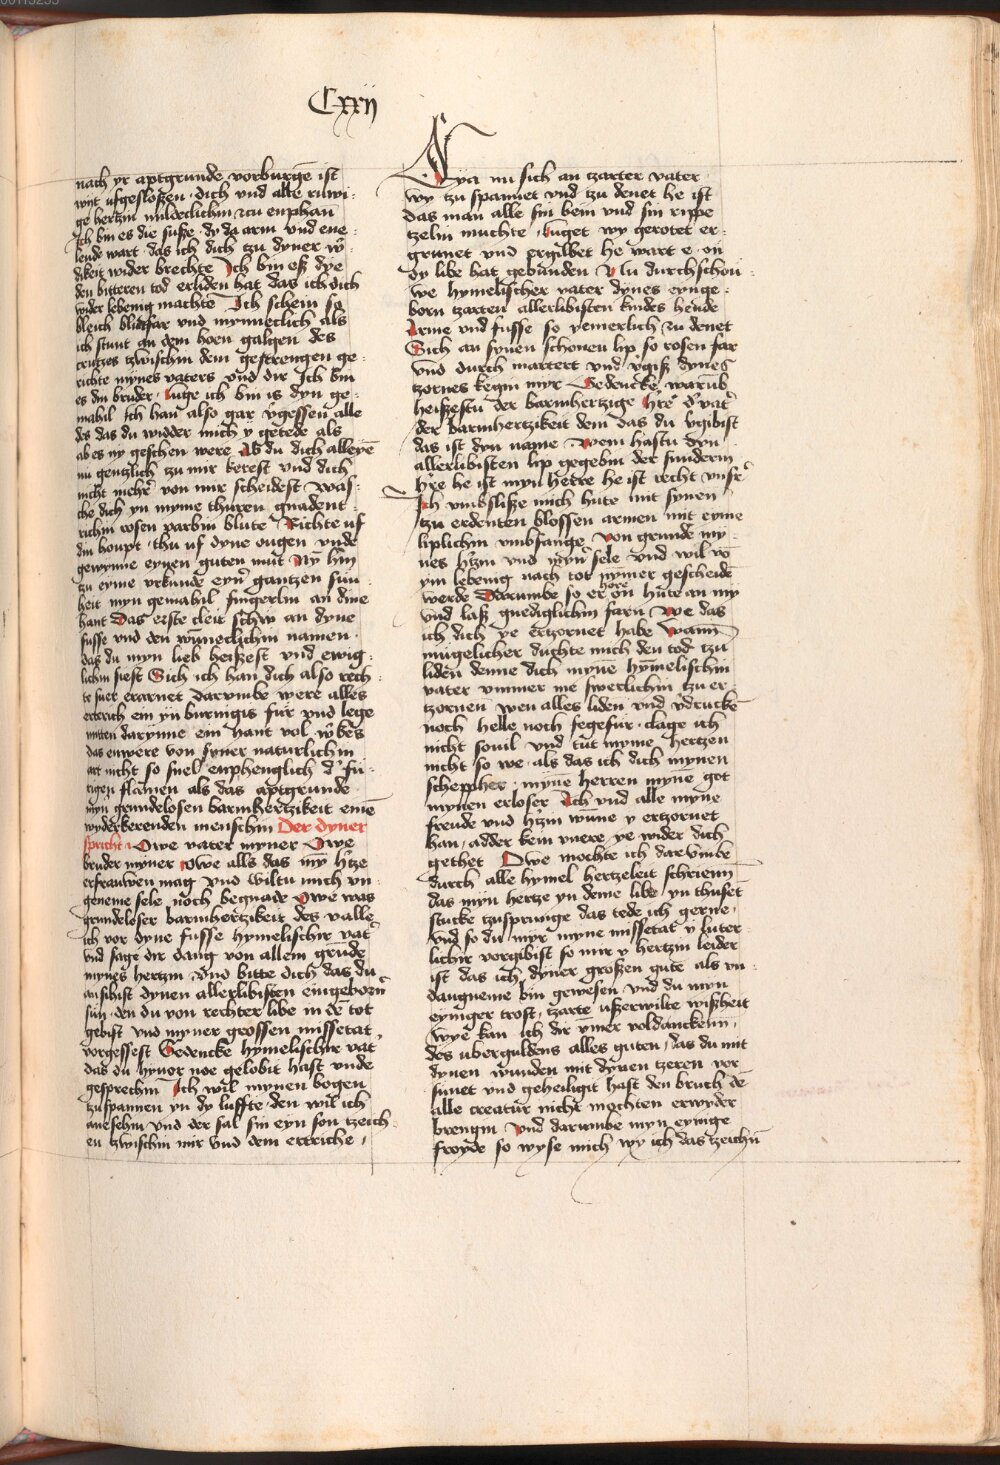 Cxxij
nach yr aptgrunde vorburgē ist
wirt ufgesloßen · dich vnd alle ruwi-
ge hertzin mildeclichin zcu enphan
Ich bin es die suße · dy da arm vnd ene-
lende wart · das ich dich tzu dyner w̄-
dikeit wider brechte Ich bin eß dye
den bitteren tod erliden hat das ich dich
wider lebenig machte Ich schein so
bleich blutfar vnd mynneclich als
ich stunt an dem hoen galgen des
crutzes tzwischin dem gestrengen ge-
richte mynes vaters vnd dir Ich bin
es din bruder · luge ich bin is dyn ge-
mahil Ich han also gar v̄gessen alle
des das du widder mich y getede als
ab es ny geschen were Ab du dich alleyē
nu gentzlich zu mir kerest vnd dich
nicht mehr von mir scheidest Was-
che dich yn myme thuren gnadent-
richin rosen varbin blute Richte uf
din houpt · thu uf dyne ougen vnde
gewynne eynen guten mut Ny hin
zu eyme vrkunde eyn gantzen sun-
heit myn gemahil fingerlin an dine
hant Das erste cleit schw an dyne
fusse vnd den wūneclichin namen ·
das du myn lieb heißest vnd ewig-
lichin siest Sich ich han dich also rech-
te suer erarnet Darumbe were alles
ertrich ein yn burnigis fur vnd lege
mitten darynne ein hant vol w̄kes
das enwere von syner naturlichin
art nicht so snel enphenglich d' fu-
rigen flamen als das aptgrunde
myn grundelosen barmhertzikeit eme
wyderkerenden menschin Der dyner
spricht Owe vater myner Owe
bruder myner Owe alls das my htze
erfrauwen mag vnd wiltu mich vn-
geneme sele noch begnade Owe was
grundeloser barmhertzikeit des valle
ich vor dyne fusse hymelischir vat'
vnd sage dir dang von allem grunde
mynes hertzin Vnd bitte dich das du
an sihist dynen allerlibisten eingeborn
sun · den du von rechter libe in dē tot
gebist vnd myner grossen missetat
vorgessest Gedencke hymelischir vat'
das du hynor noe gelobit hast vnde
gesprechin Ich wil mynen bogen
zuspannen yn dy luffte · den wil ich
ansehin vnd der sal sin eyn son tzeich-
en tzwischin mir vnd dem ertriche /
Eya nu sich an tzarter vater
wy tzu spannet vnd tzu denet he ist
das man alle sin bein vnd sin rippe
tzelin muchte · luget wy gerotet er-
grunet vnd ergilbet he wart e · on
dy libe hat gebunden Nu durchschou-
we hymelischer vater dynes eynge-
born tzarten allerlibisten kindes hende
Arme vnd fusse so yemerlich zu denet
Sich an synen schonen lip so rosen far
vnd durch martert vnd v̄giß dynes
zornes kegin myr Gedencke warūb
heißestu der barmhertzige h're d' vat'
der barmhertzikeit dem das du v̄gibist
das ist dyn name Wem hastu dyn
allerlibisten lip gegebin der sunderin
h're he ist myn herre he ist recht vnsr'
Ich vmbsliße mich hute mit synen
tzu erdenten blossen armen mit eyme
liplichin vmbfange Von grunde my-
nes h'tzin vnd myn' sele vnd wil vō
ym lebenig nach tot nymer gescheidē
werde Darumbe so er hore on hute an my
vnd laß gnediglichin farn We das
ich dich ye ertzornet habe Wann
mugelicher duchte mich den tod tzu
liden denne dich mynē hymelischin
vater vmmer me swerlichin tzu er-
tzornen wen alles liden vnd v̄druckē
noch helle noch fegefur · clage ich
nicht souil vnd tut myme hertzen
nicht so we · als das ich dich mynen
scheppher · mynē herren mynē got
mynen erloser Ich vnd alle myne
freude vnd h'tzin wune y ertzornet
han / adder kein vnere ye wider dich
gethet Owe mochte ich darvmbe
durch alle hymel hertzeleit schrienn
das myn hertze yn deme libe yn thusēt
stucke tzusprunge das tede ich gerne ·
Vnd so du myr myne missetat y luter-
lichir vorgibist so mir y hertzin leider
ist das ich dyner großen gute als vn-
dangneme bin gewesen vnd du myn
eyniger trost / tzarte ußerwilte wißheit
Wye kan ich dir vmer voldanckenn ·
des uberguldens alles guten / das du mit
dynen wunden mit dynen tzeren vor
sunet vnd geheiligit hast den bruch dē
alle creatur nicht mochten erwyder
brengin Vnd darumbe myn eynige
froyde so wyse mich wy ich das tzeichn̄